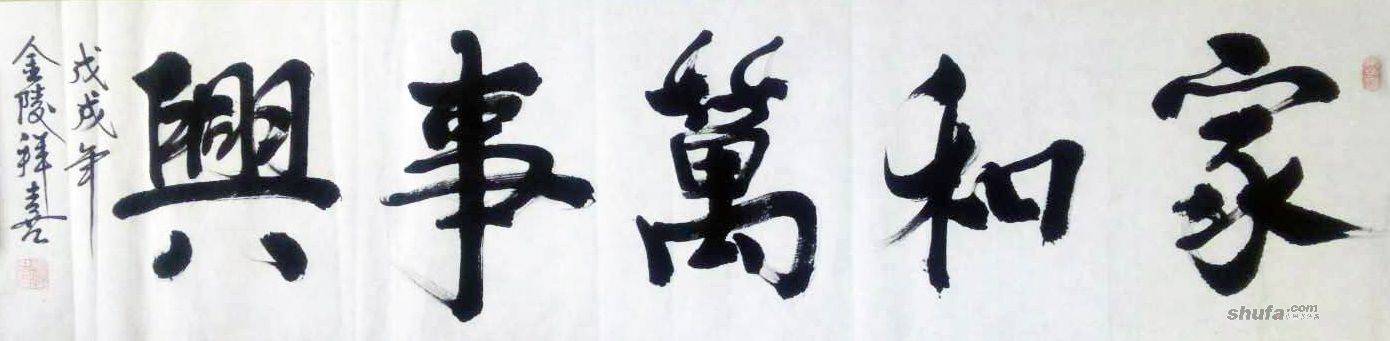 家和萬事興
戊戌年
金陵祥喜
shufa.com